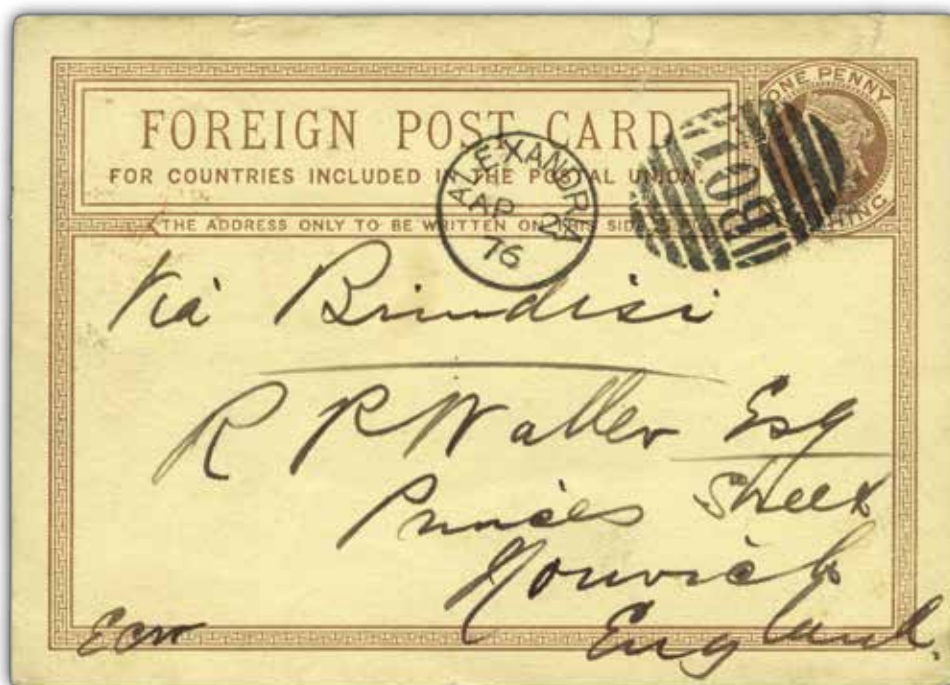 FOREIGN POST CARD
FOR COUNTRIES INCLUDED IN THE POSTAL UNION.
THE ADDRESS ONLY TO BE WRITTEN ON THIS SIDE
ONE PENNY
ALEXANDRIA
AP 2
76
B01
Viâ Brindisi
R R Waller Esq
Princes Street
Norwich
England.